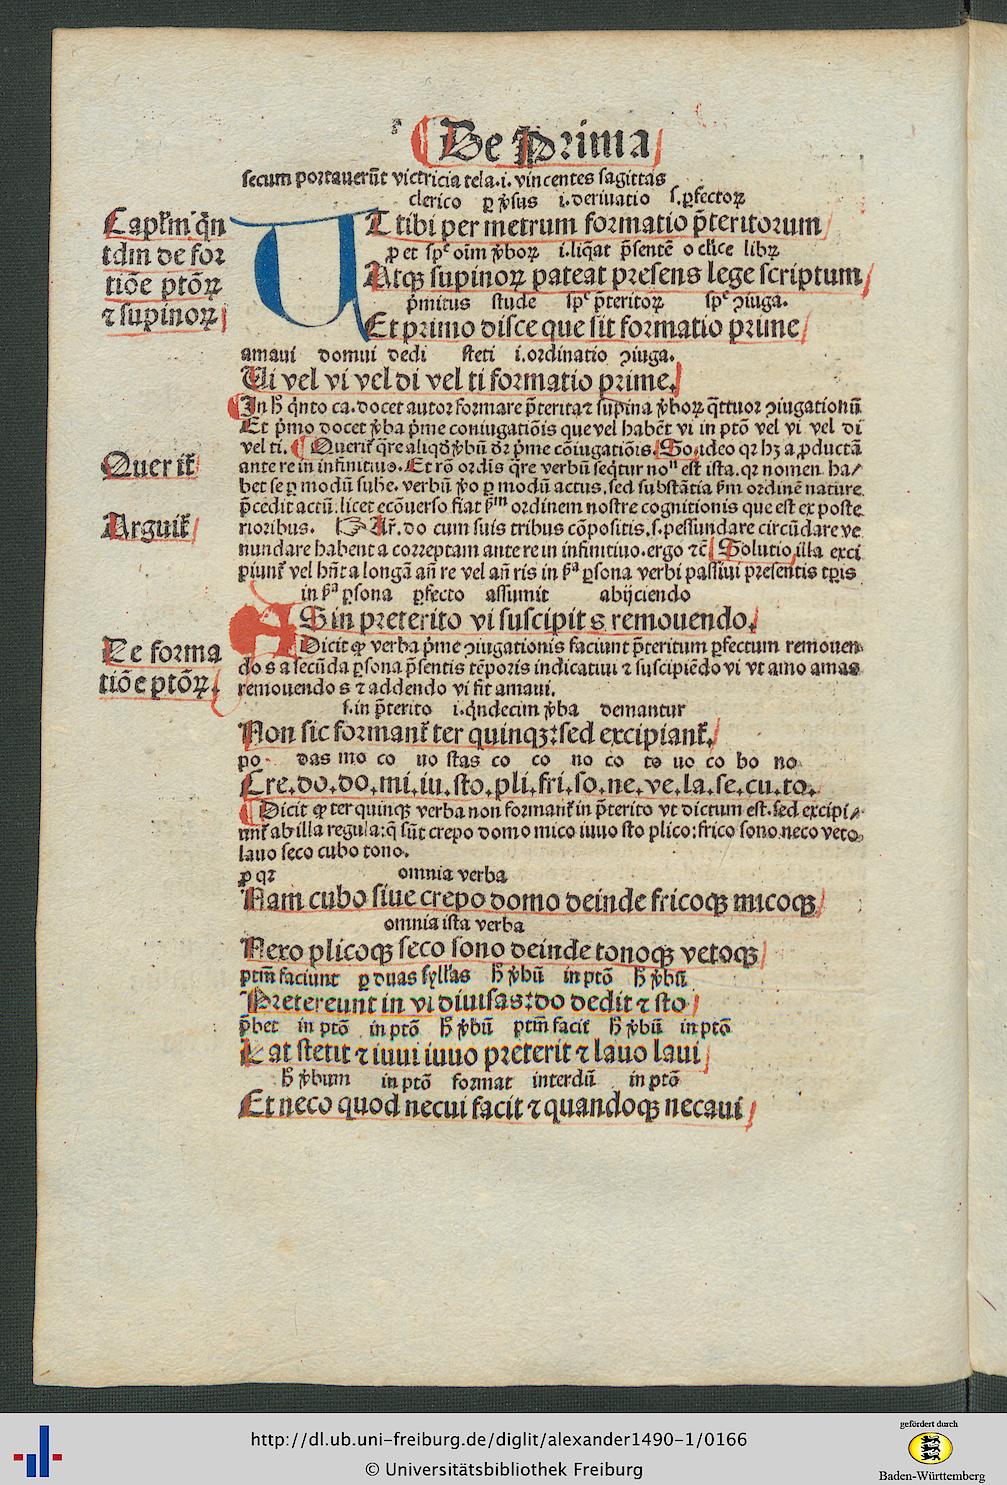 De Prima
secum portauerũt victricia tela.i. vincentes sagittas
clerico ꝑ v̾sus i.deriuatio s.ꝑfectoꝝ
Capl̃m q̃n
tũm de for
tiõe ptõꝝ
⁊ supinoꝝ
UT tibi per metrum formatio p̃teritorum
ꝓ et spẽ oĩm v̾boꝝ i.liq̃at p̃sentẽ o cl̃ice libꝝ
Atqꝫ supinoꝝ pateat presens lege scriptum
p̃mitus stude spẽ p̃teritoꝝ spẽ ꝯiuga.
Et primo disce que sit formatio prime
amaui domui dedi steti i.ordinatio ꝯiuga.
Ui vel vi vel di vel ti formatio prime.
In h̃ q̃nto ca. docet autor formare p̃terita ⁊ supina v̾boꝝ q̃ttuor ꝯiugationũ
Et p̃mo docet v̾ba p̃me coniugatiõis que vel habẽt vi in ptõ vel vi vel di
vel ti. Querit̃ q̃re aliqd̃ v̾bũ dr̃ p̃me cõiugatiõis. So. ideo qꝛ hꝫ a ꝓductã
Querit̃
ante re in infinitiuo. Et rõ ordis q̃re verbũ seq̃tur noⁿ est ista. qꝛ nomen ha/
bet se ꝑ modũ subẽ. verbũ v̾o ꝑ modũ actus, sed substãtia ẜm ordinẽ nature
p̃cedit actũ. licet ecõuerso fiat ẜm ordinem nostre cognitionis que est ex poste
Arguit̃
rioribus. ☞ Ar̃. do cum suis tribus cõpositis. s. pessundare circũdare ve
nundare habent a correptam ante re in infinitiuo. ergo ⁊c̃ Solutio illa exci
piunt̃ vel hñt a longã añ re vel añ ris in ẜᵃ ꝑsona verbi passiui presentis tꝑis
in ẜᵃ ꝑsona ꝑfecto assumit abijciendo
AS in preterito vi suscipit s remouendo.
De forma
tiõe ptõꝝ.
Dicit ꝙ verba p̃me ꝯiugationis faciunt p̃teritum ꝑfectum remouen
do s a secũda ꝑsona p̃sentis tẽporis indicatiui ⁊ suscipiẽdo vi vt amo amas
remouendo s ⁊ addendo vi fit amaui.
s.in p̃terito i.q̃ndecim v̾ba demantur
Non sic formant̃ ter quinqꝫ: sed excipiant̃.
po das mo co uo stas co co no co to uo co bo no
Cre.do.do.mi.iu.sto.pli.fri.so.ne.ve.la.se.cu.to.
Dicit ꝙ ter quinqꝫ verba non formant̃ in p̃terito vt dictum est. sed excipi/
unt̃ ab illa regula: q̃ sũt crepo domo mico iuuo sto plico: frico sono neco veto
lauo seco cubo tono.
ꝓ qꝛ omnia verba
Nam cubo siue crepo domo deinde fricoqꝫ micoqꝫ
omnia ista verba
Nexo plicoqꝫ seco sono deinde tonoqꝫ vetoqꝫ
ptm̃ faciunt ꝑ duas syll̃as h̃ v̾bũ in ptõ h̃ v̾bũ
Pretereunt in vi diuisas: do dedit ⁊ sto
p̃bet in ptõ in ptõ h̃ v̾bũ ptm̃ facit h̃ v̾bũ in ptõ
Dat stetit ⁊ iuui iuuo preterit ⁊ lauo laui
h̃ v̾bum in ptõ format interdũ in ptõ
Et neco quod necui facit ⁊ quandoqꝫ necaui
http://dl.ub.uni-freiburg.de/diglit/alexander1490-1/0166
© Universitätsbibliothek Freiburg
gefördert durch
Baden-Württemberg